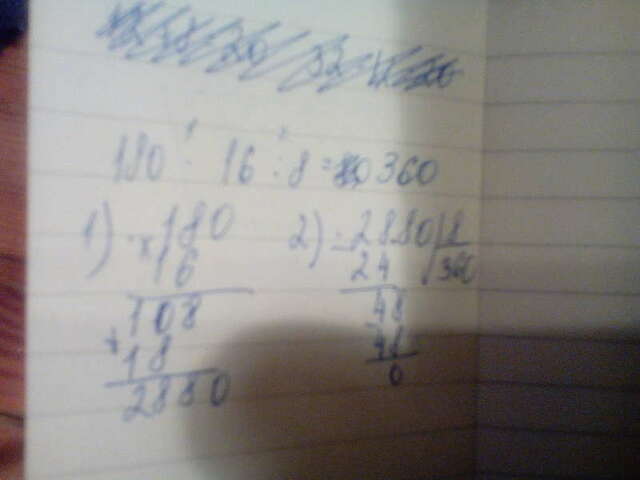 180 · 16 : 8 = 360
1) × 180
16
108
+ 18
2880
2) - 2880 | 8
24 | 360
48
48
0